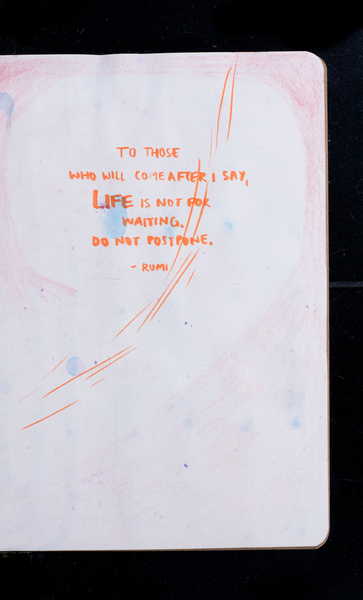 TO THOSE
WHO WILL COME AFTER I SAY,
LIFE IS NOT FOR
WAITING.
DO NOT POSTPONE.
- RUMI